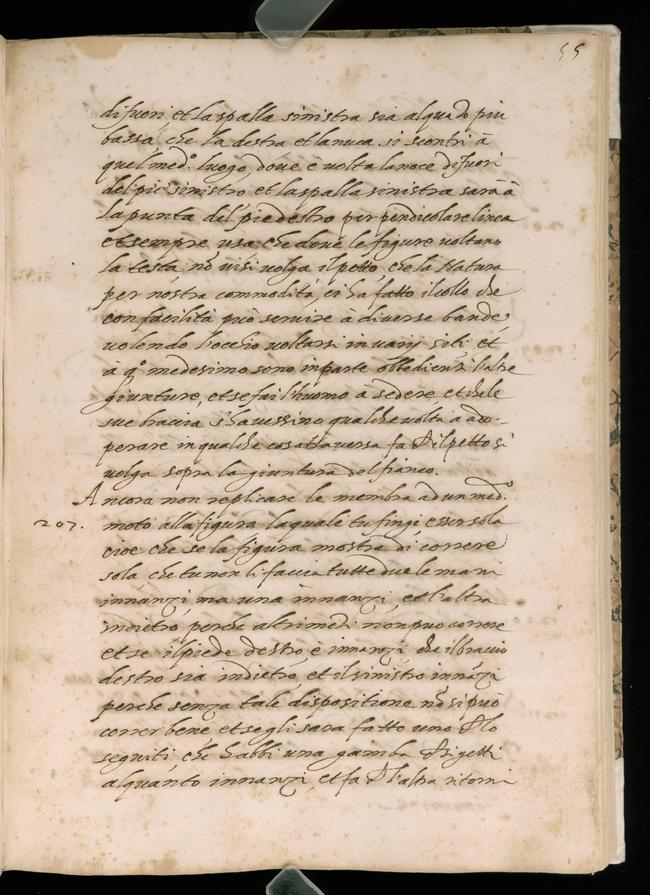 55
di fuori et la spalla sinistra sia alquãdo piu
bassa, che la destra et la nuca si scontri à
quel med.º luogo, dove è volta la noce di fuori
del piè sinistro et la spalla sinistra sarà à
la punta del piè destro per perpendicolare linea
et sempre usa che dove le figure voltano
la testa, nõ vi si volga il petto, che la Natura
per nostra commodità, ci ha fatto il collo che
con facilità può servire à diverse bande,
volendo l'occhio voltarsi in varij siti et
à q.º medesimo sono in parte obbedienzi l'altre
giunture, et se fai l'huomo à sedere et che le
sue braccia s'havessino qualche volta à ado-
perare in qualche cosa traversa fa ch il petto si
volga sopra la giuntura del fianco.
Ancora non replicare le membra ad un med.º
207. moto alla figura la quale tu fingi esser sola
cioè che se la figura mostra di correre
sola che tu non li faccia tutte due le mani
innanzi ma una innanzi, et l'altra
indietro perche altrimẽti non può correre
et se il piede destro è innanzi che il braccio
destro sia indietro et il sinistro innãzi
perche senza tale dispositione nõ si può
correr bene et se gli sara fatto uno ch lo
seguiti, che habbi una gamba ch si getti
alquanto innanzi, et fa ch l'altra ritorni